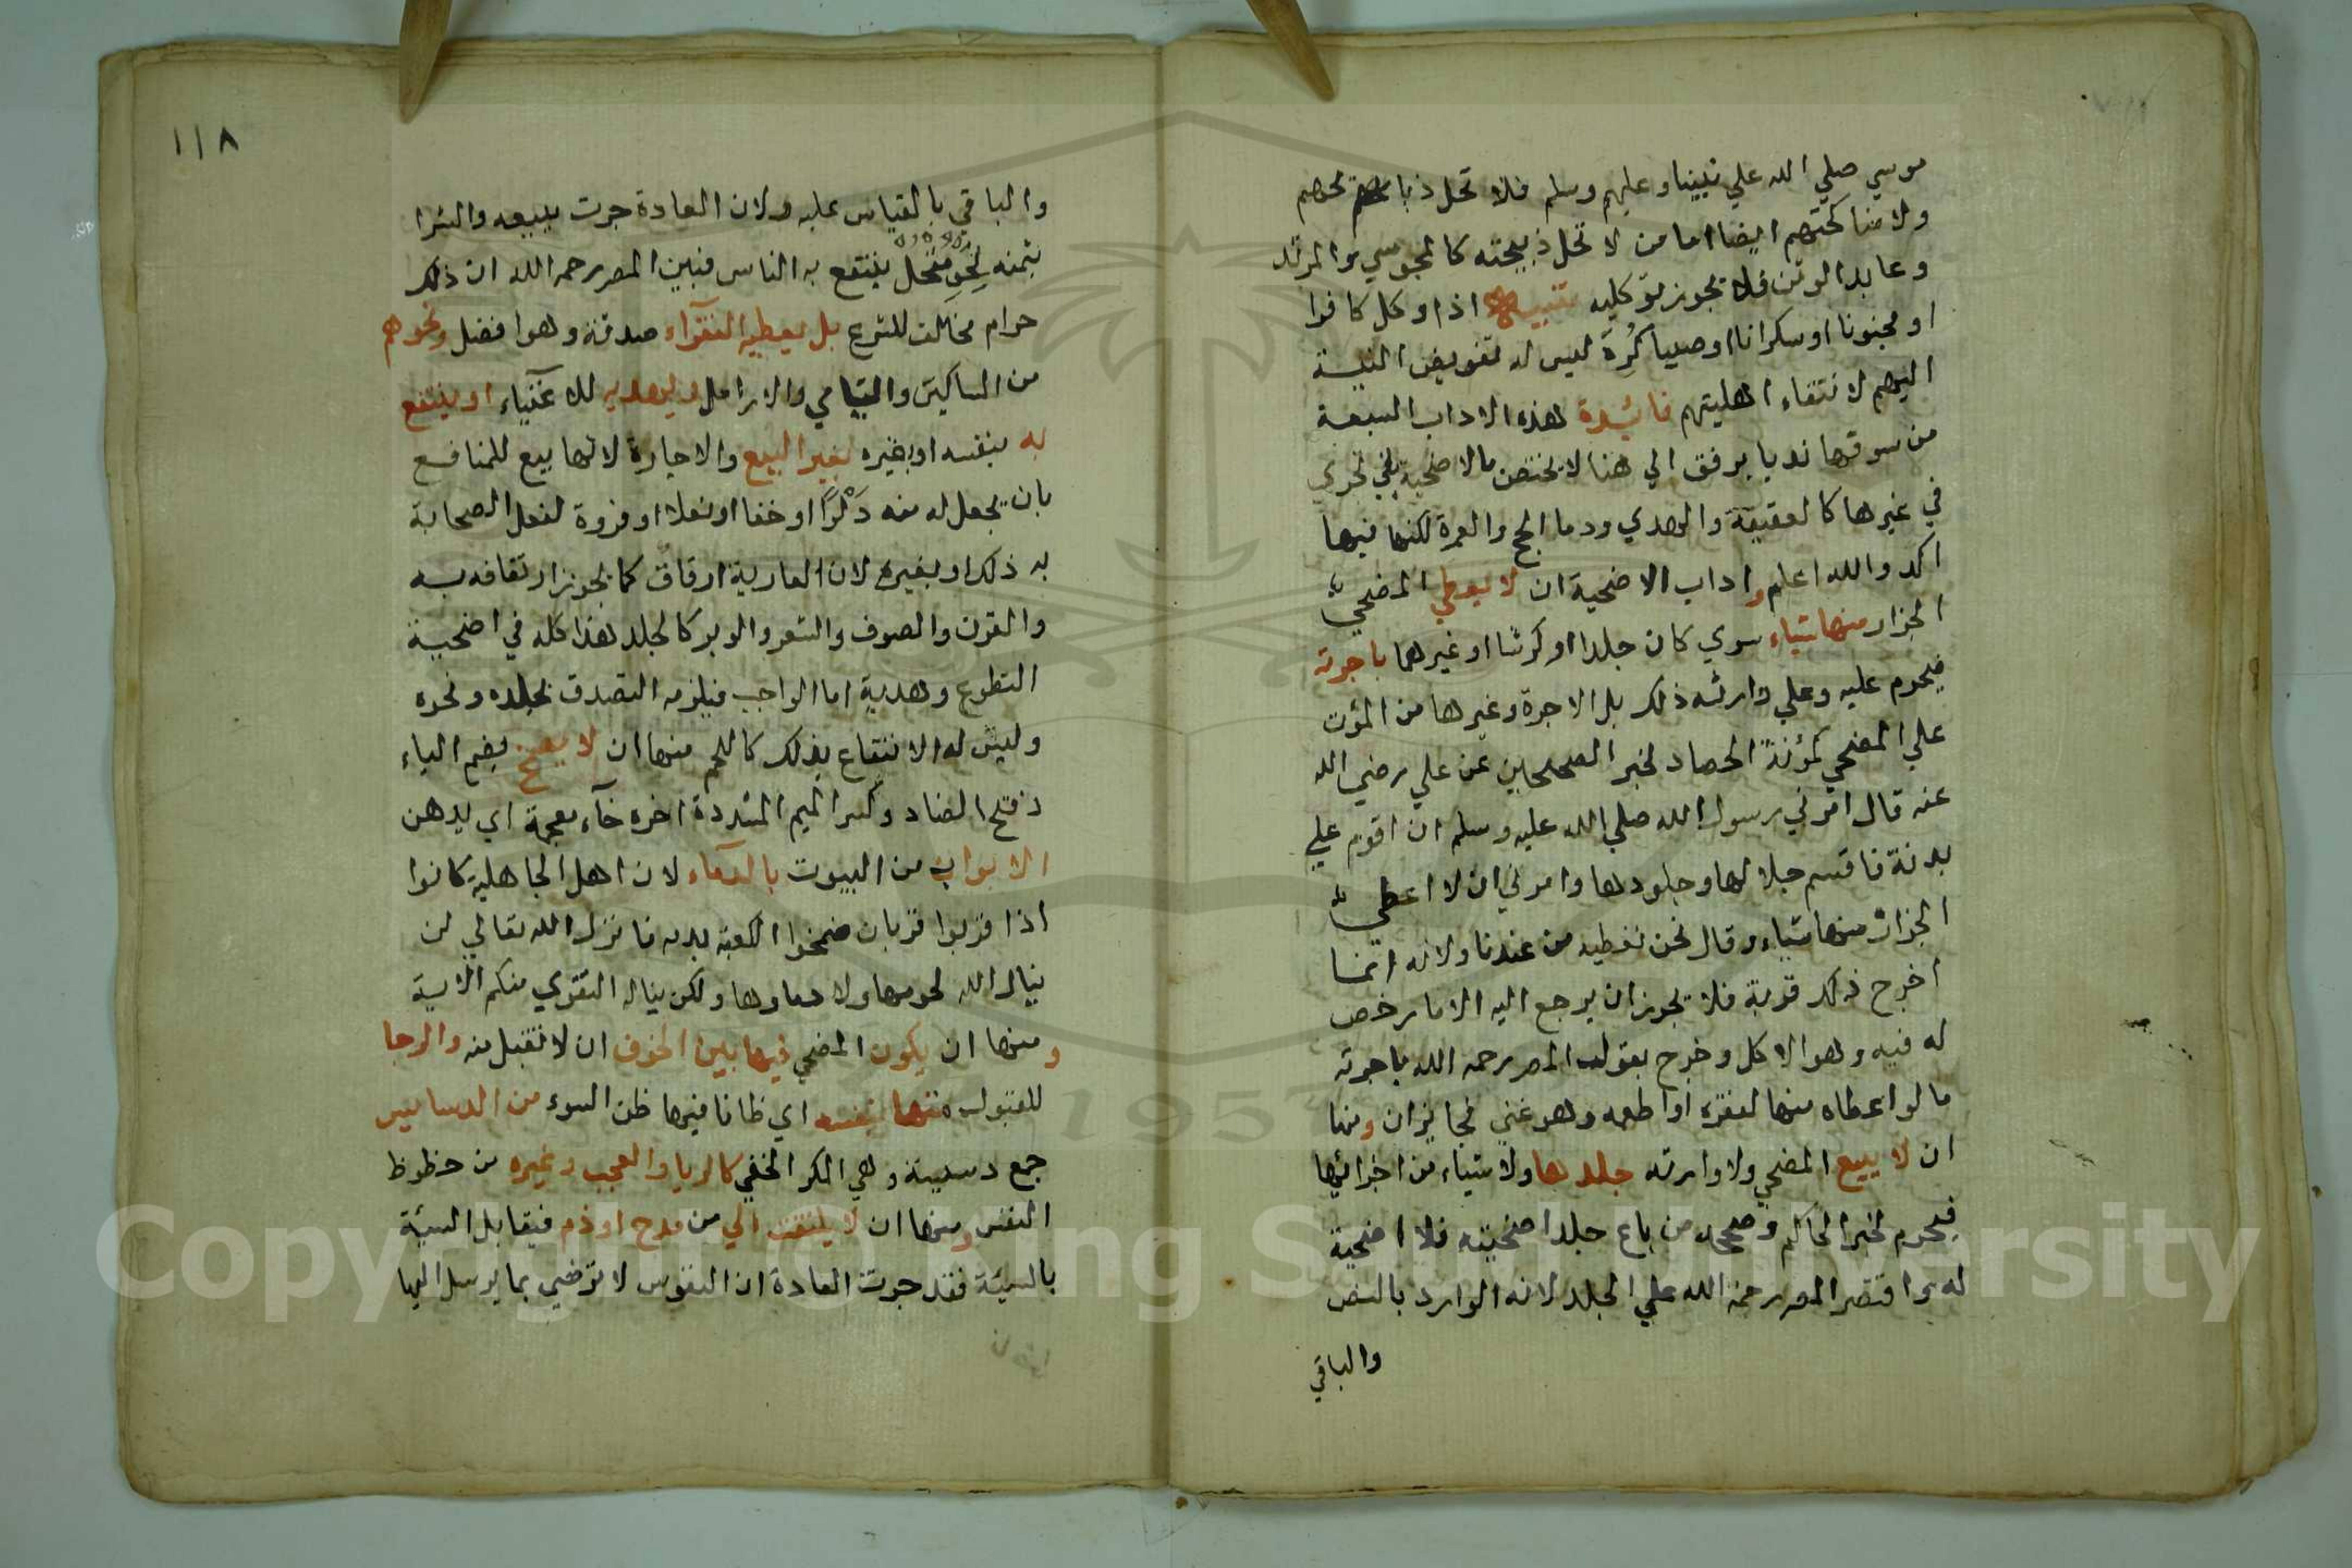 موسي صلي الله علي نبينا وعليهم وسلم فلا تحل ذبائحهم
ولا مناكحتهم ايضا اما من لا تحل ذبيحته كالمجوسي والمرتد
وعابد الوثن فلا يجوز توكليه تنبيه اذا وكل كافرا
او مجنونا او سكرانا او صبيا كُرِهَ ليس له تفويض النية
اليهم لانتفاء اهليتهم فائدة هذه الاداب السبعة
من سوقها ندبا برفق الي هنا لا يختص بالاضحية بل تجري
في غيرها كالعقيقة والهدي ودما الحج والعمرة لكنها فيها
اكد والله اعلم واداب الاضحية ان لا يعطي المضحي
الجزار منها شياء سوي كان جلدا او كرشا او غيرهما باجرته
فيحرم عليه وعلي وارثه ذلك بل الاجرة وغيرها من المؤن
علي المضحي كمؤنة الحصاد لخبر الصحيحين عن علي رضي الله
عنه قال امرني رسول الله صلي الله عليه وسلم ان اقوم علي
بدنة فاقسم جلالها وجلودها وامرني ان لا اعطي
الجزار منها شياء وقال نحن نعطيه من عندنا ولانه انما
اخرج ذلك قربة فلا يجوز ان يرجع اليه الا ما رخص
له فيه وهو الاكل وخرج بقول المص رحمه الله باجرته
ما لو اعطاه منها لفقره او اطعمه وهو غني فجائزان ومنها
ان لا يبيع المضحي ولا وارثه جلدها ولا شياء من اجزائها
فيحرم لخبر الحاكم وصححه من باع جلد اضحيته فلا اضحية
له واقتصر المص رحمه الله علي الجلد لانه الوارد بالنص
والباقي
١١٨
والباقي بالقياس عليه ولان العادة جرت ببيعه والشرا
بثمنه لنحو منخل ينتفع به الناس فبين المص رحمه الله ان ذلك
حرام مخالف للشرع بل يعطيه الفقرآء صدقة وهو افضل ونحوهم
من المساكين واليتامي والارامل ويهديه للاغنياء او ينتفع
به بنفسه او بغيره بغير البيع والاجارة لانها بيع للمنافع
بان يجعل له منه دَلْوًا او خفا او نعلا او فروة لفعل الصحابة
به ذلك او بغيره لان العارية ارقاق كما يجوز ارتفاقه به
والقرن والصوف والشعر والوبر كالجلد هذا كله في اضحية
التطوع وهدية اما الواجب فيلزمه التصدق بجلده ونحوه
وليس له الانتفاع بذلك كاللحم منها ان لا يضمخ بضم الياء
وفتح الضاد وكسر الميم المشددة اخره خآء معجمة اي يدهن
الابواب من البيوت بالدمآء لان اهل الجاهلية كانوا
اذا قربوا قربان ضمخوا الكعبة بدمه فانزل الله تعالي لن
ينال الله لحومها ولا دماوها ولكن يناله التقوي منكم الاية
ومنها ان يكون المضحي فيها بين الخوف ان لا تقبل منه والرجا
للقبول متهما نفسه اي ظانا فيها ظن السوء من الدسايس
جمع دسيسة وهي المكر الخفي كالريا والعجب وغيره من حظوظ
النفس ومنها ان لا يلتفت الي من مدح او ذم فيقابل السيئة
بالسيئة فقد جرت العادة ان النفوس لا ترضي بما يرسل اليها
Copyright © King Saud University
1957